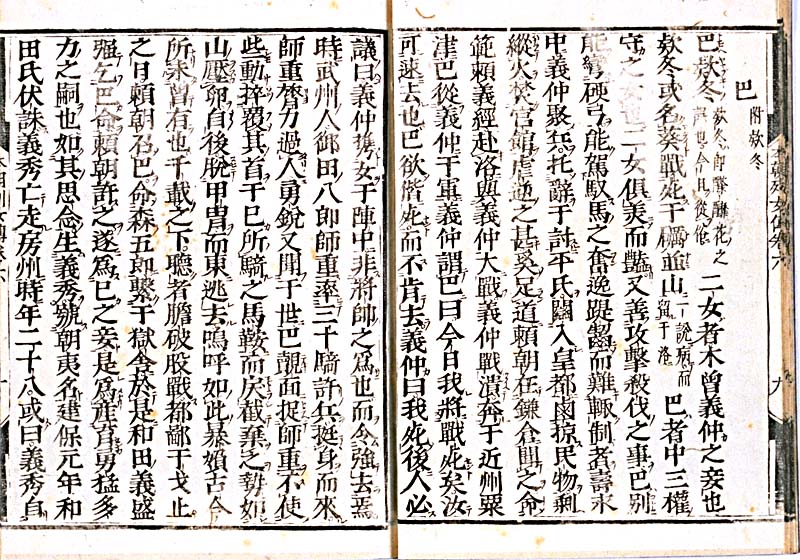 巴 附欵冬
巴欵冬 欵冬即酴醾花之異也今且從俗 二女者木曾義仲之妾也
欵冬或名葵戰死于礪並山 一説病而留于洛 巴者中三權
守之女也二女俱美而豔又善攻擊殺伐之事巴別
能彎硬弓能駕馭馬之奮逸踶齧而難輙制者壽永
中義仲聚兵托辭于討平氏闖入皇都鹵掠民物剩
縱火焚官館虐逼之甚奚足道賴朝在鎌倉聞之命
範賴義經赴洛與義仲大戰義仲戰潰奔于近州粟
津巴從義仲于軍義仲謂巴曰今日我將戰死矣汝
可速去也巴欲偕死而不肯去義仲曰我死後人必
議曰義仲擕女于陣中非將帥之爲也而令強去焉
時武州人御田八郎師重率三十騎許兵挺身而來
師重膂力過人勇銳又聞于世巴覿面捉師重不使
些動捽覆其首于巳所騎之馬鞍而戾截棄之勢如
山壓卵自後脫甲冑而東逃去嗚呼如此暴婟古今
所未曾有也千載之下聽者膽破股戰都鄙干戈止
之日賴朝召巴命森五郎繫于獄舍於是和田義盛
强乞巴命賴朝許之遂爲巳之妾是爲產育勇猛多
力之嗣也如其思念生義秀號朝夷名建保元年和
田氏伏誅義秀亡走房州時年二十八或曰義秀自